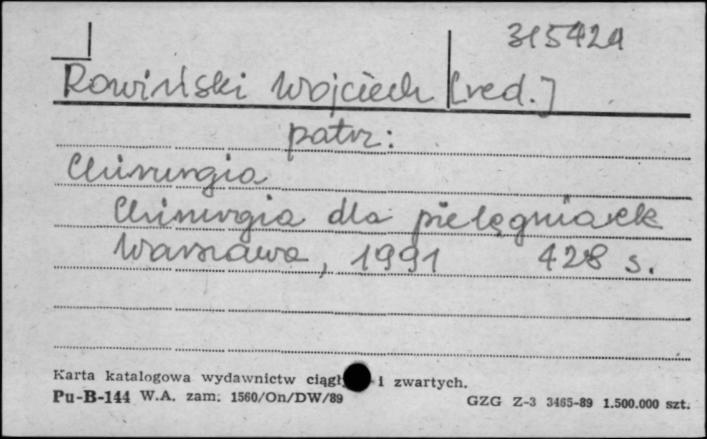 315424
Rowiński Wojciech [red.]
patrz:
Chirurgia
Chirurgia dla pielęgniarek
Warszawa, 1991 428 s.
Karta katalogowa wydawnictw ciągł i zwartych.
Pu-B-144 W.A. zam. 1560/On/DW/89 GZG Z-3 3465-89 1.500.000 szt.